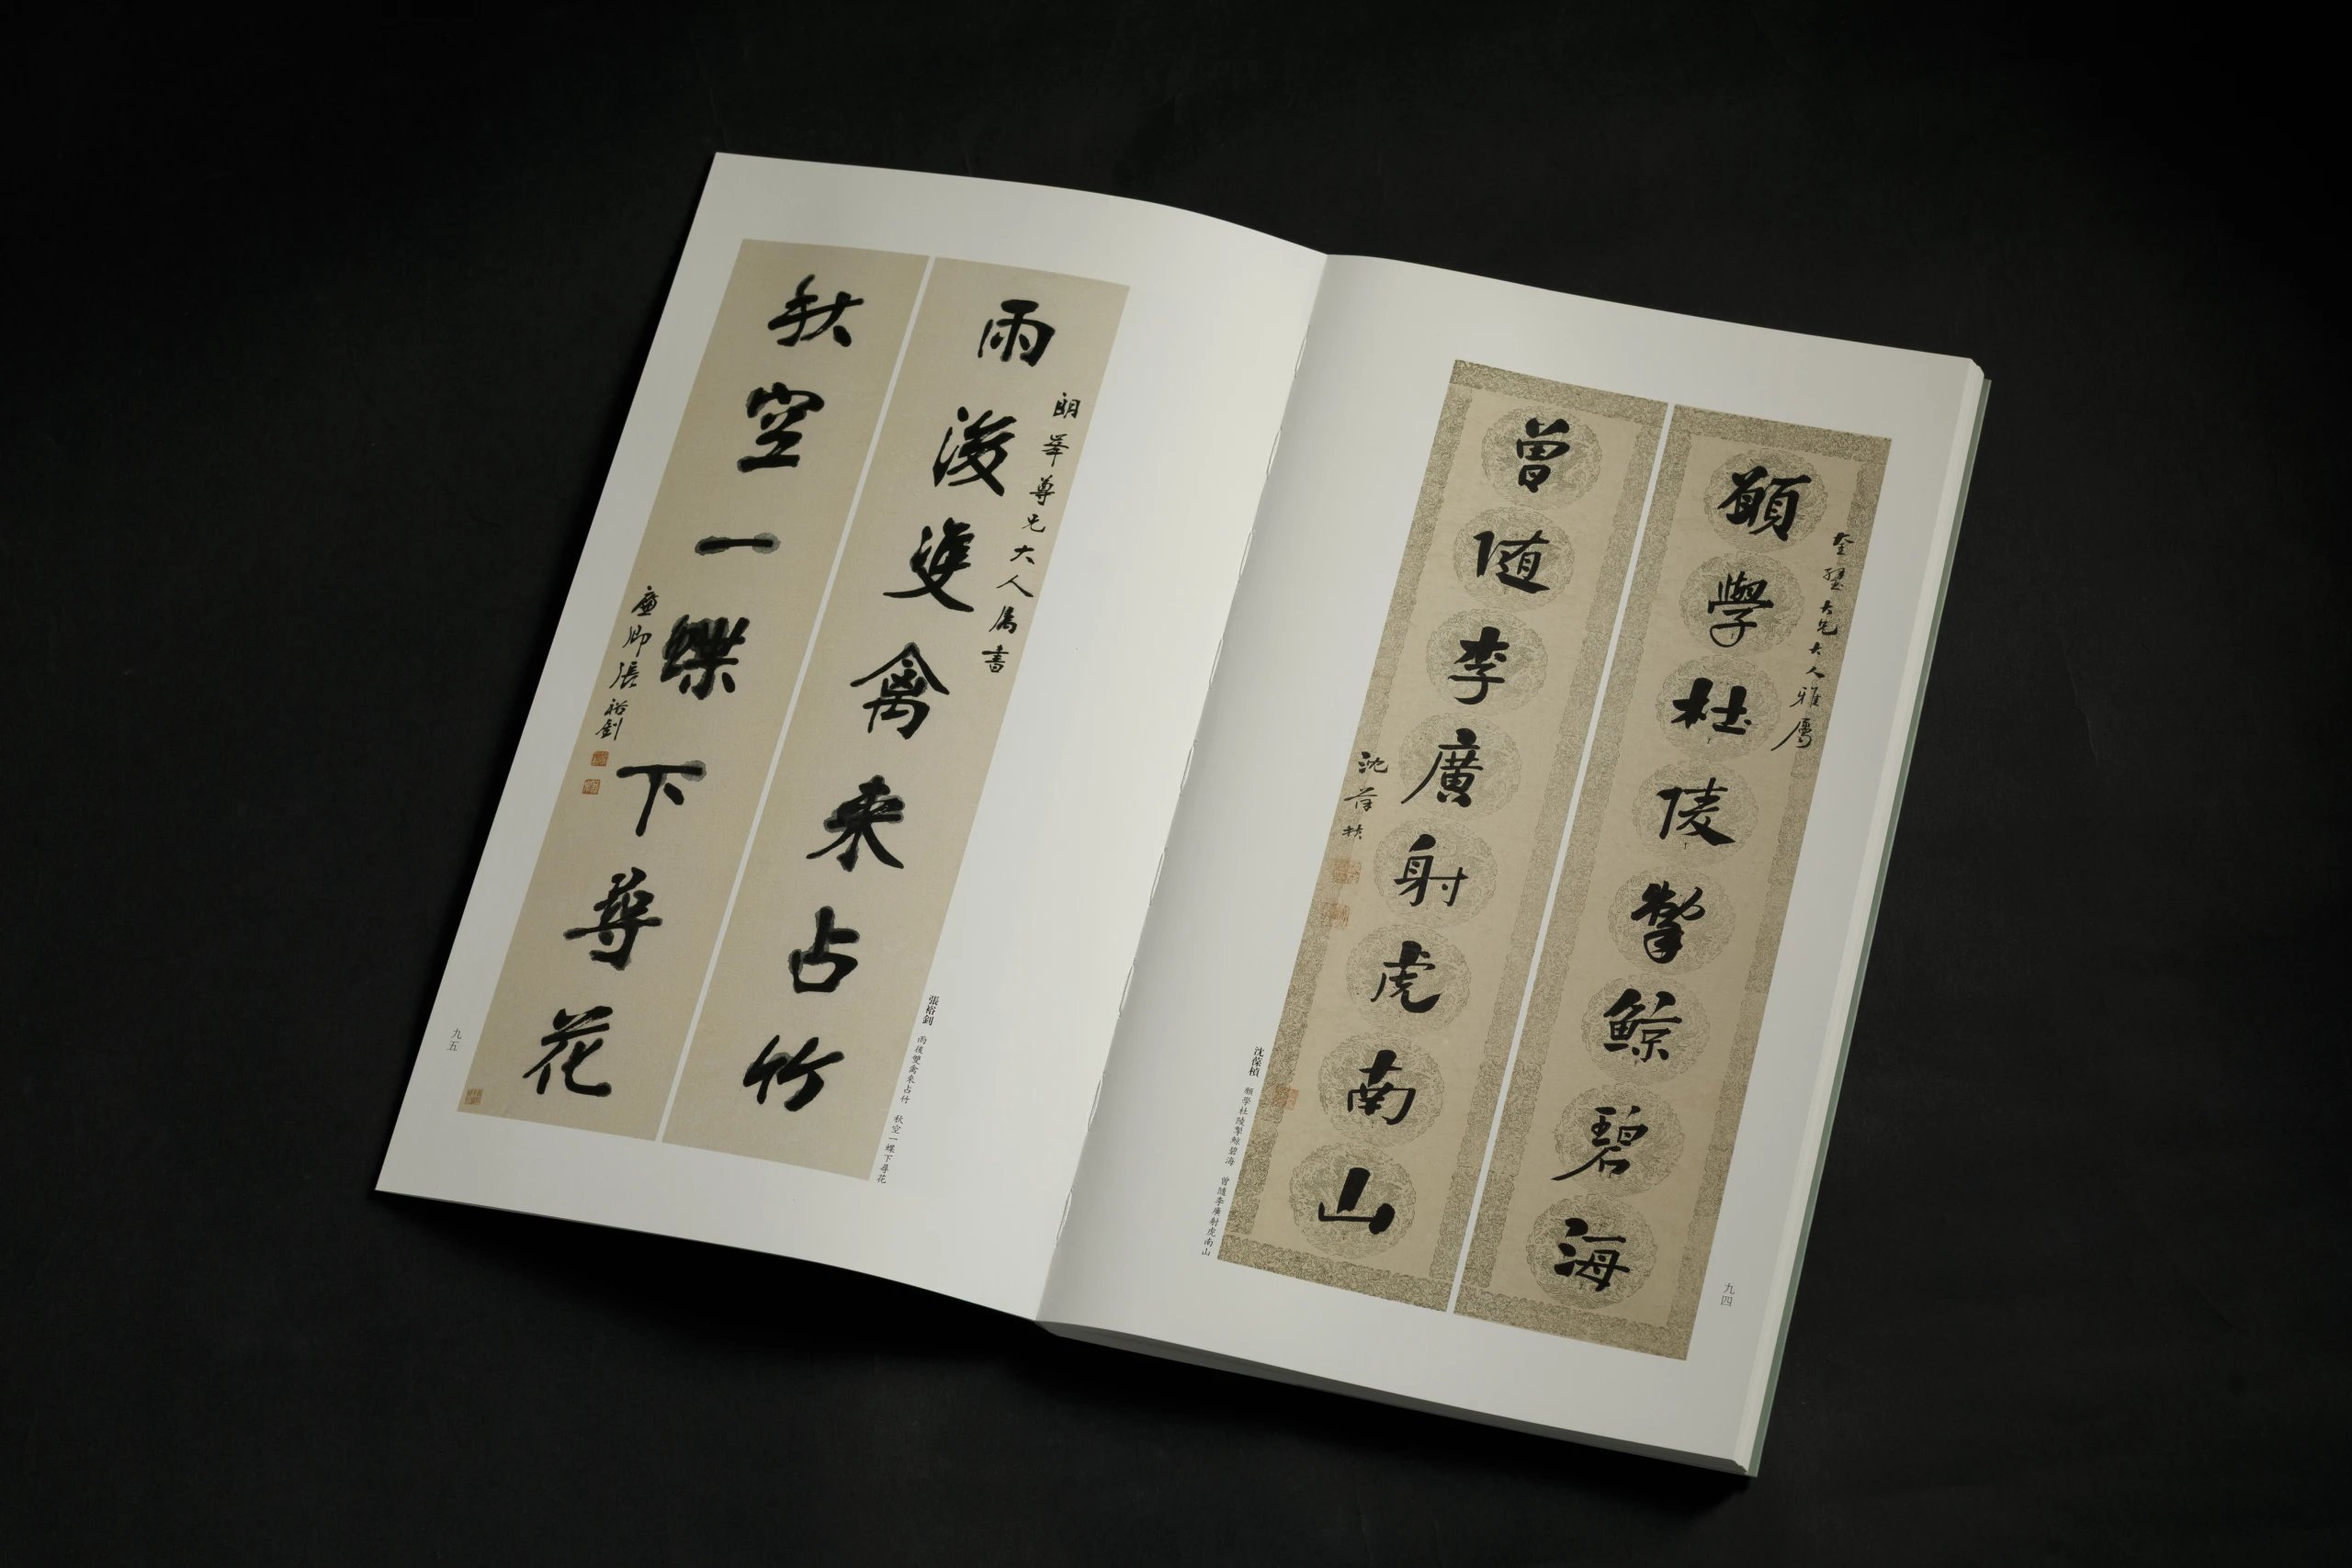 願學杜陵掣鯨碧海
大兄大人雅屬
曾随李廣射虎南山
沈葆楨
沈葆楨 願學杜陵掣鯨碧海 曾隨李廣射虎南山
九四
雨後雙禽来占竹
朗峯尊兄大人属書
秋空一蝶下尋花
廉卿張裕釗
張裕釗 雨後雙禽來占竹 秋空一蝶下尋花
九五